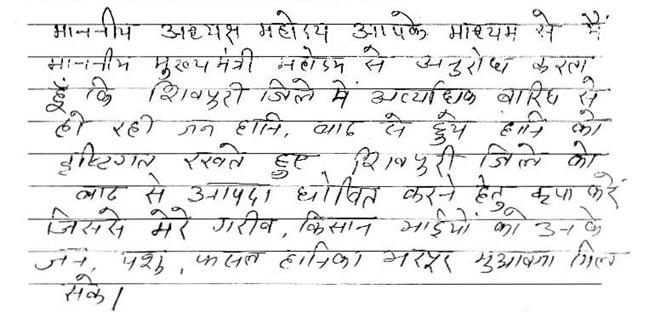 माननीय अध्यक्ष महोदय आपके माध्यम से मैं
माननीय मुख्यमंत्री महोदय से अनुरोध करता
हूँ कि शिवपुरी जिले में अत्याधिक बारिश से
हो रही जन हानि, बाढ से हुये हानि को
दृष्टिगत रखते हुए शिवपुरी जिले को
बाढ से आपदा घोषित करने हेतु कृपा करें
जिससे मेरे गरीब, किसान भाईयों को उनके
जन, पशु, फसल हानिका भरपूर मुआवजा मिल
सके।